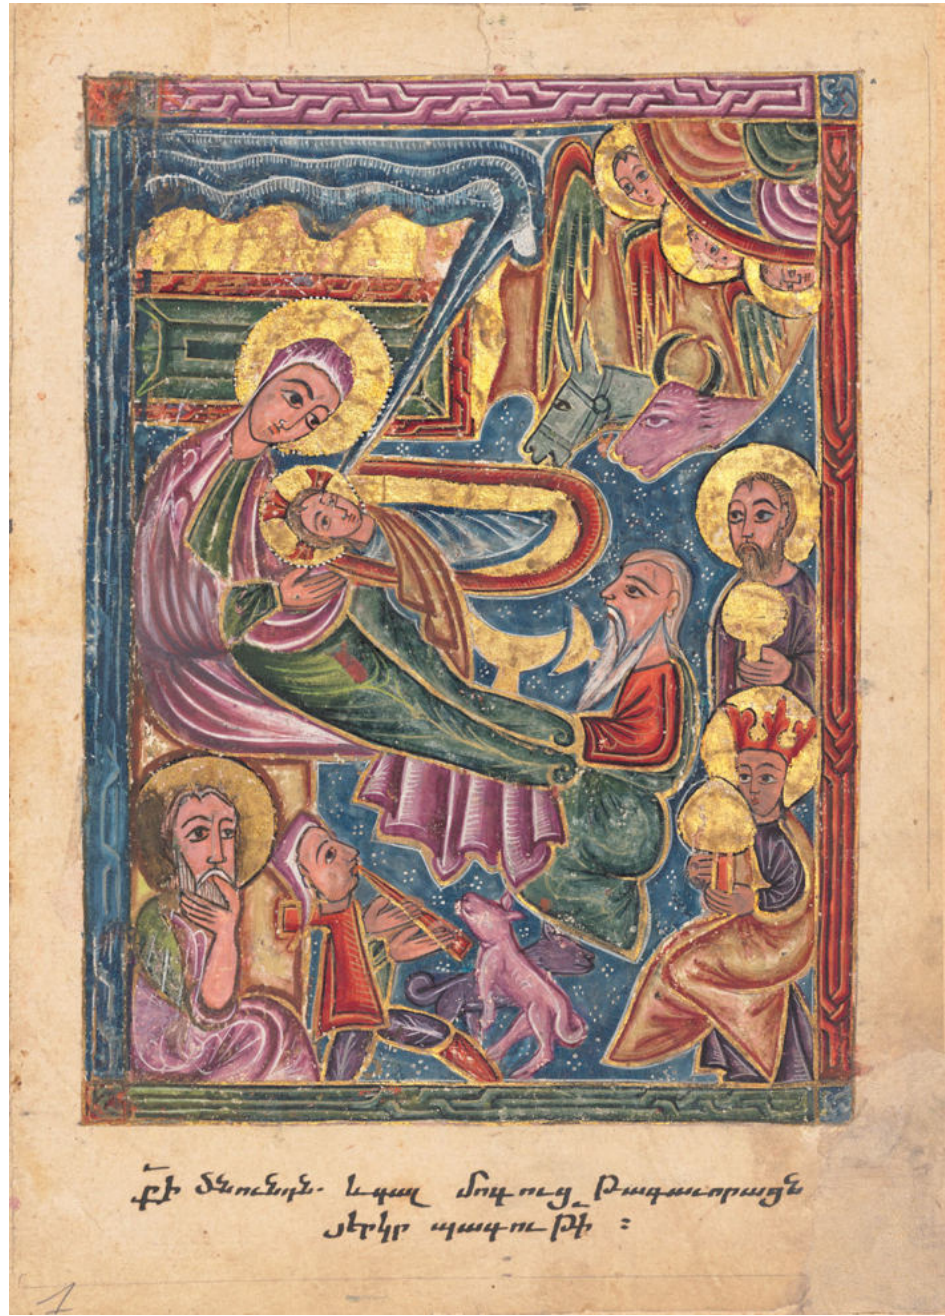 Քի ծնունդն. և գալ մոգուց թագաւորացն
յերկր պագութի ։
1